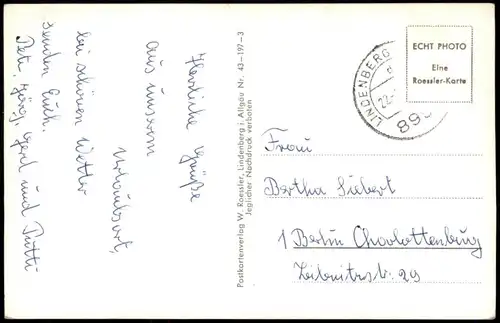 Herzliche Grüße
aus unserem
Urlaubsort,
bei schönen Wetter
senden Euch.
Petr, Jörg, Gerl und Putti
Postkartenverlag W. Roessler, Lindenberg i. Allgäu Nr. 43-197-3
Jeglicher Nachdruck verboten
LINDENBERG
22.
899
ECHT PHOTO
Eine
Roessler-Karte
Frau
Bertha Siebert
1 Berlin Charlottenburg
Leibnitzstr. 29